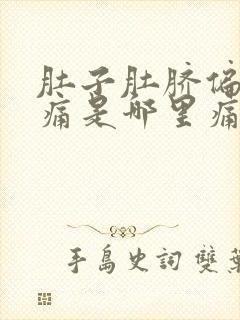 肚子肚脐偏
痛是哪里痛
手島史詞 雙葉